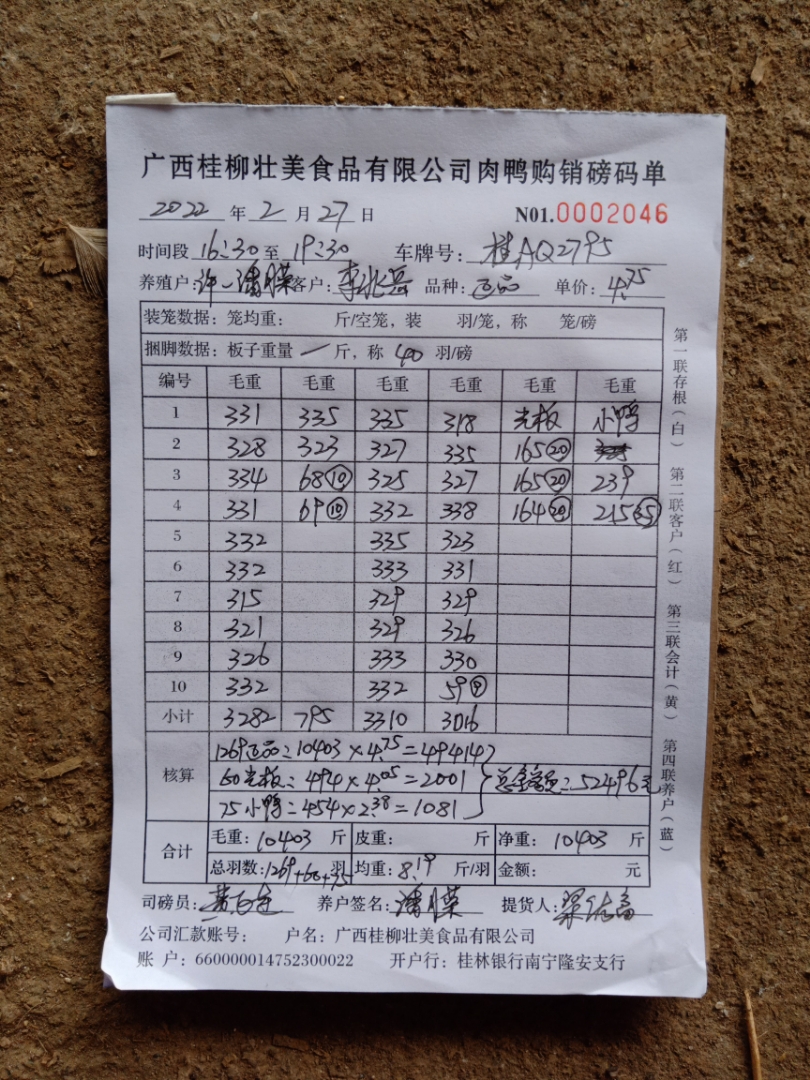 广西桂柳壮美食品有限公司肉鸭购销磅码单
2022 年 2 月 27 日 N01.0002046
时间段 16:30 至 19:30 车牌号: 桂AQ2795
养殖户: 许一潘 客户: 李 品种: 正品 单价: 4.75
装笼数据: 笼均重: 斤/空笼, 装 羽/笼, 称 笼/磅
捆脚数据: 板子重量 一 斤, 称 40 羽/磅
编号 毛重 毛重 毛重 毛重 毛重 毛重
1 331 335 335 318 光板 小鸭
2 328 323 327 335 165⑳
3 334 68⑩ 325 327 165⑳ 239
4 331 69⑩ 332 338 164⑳ 215㉟
5 332 335 323
6 332 333 331
7 315 329 329
8 321 329 326
9 326 333 330
10 332 332 59
小计 3282 795 3310 3016
核算
1269正品=10403×4.75=49414
60光板=494×4.05=2001 总金额=52496元
75小鸭=454×2.38=1081
合计
毛重: 10403 斤 皮重: 斤 净重: 10403 斤
总羽数: 1269+60+75 羽 均重: 8.19 斤/羽 金额: 元
司磅员: 黄 养户签名: 潘 提货人: 梁
公司汇款账号: 户名: 广西桂柳壮美食品有限公司
账 户: 660000014752300022 开户行: 桂林银行南宁隆安支行
第一联存根(白) 第二联客户(红) 第三联会计(黄) 第四联养户(蓝)